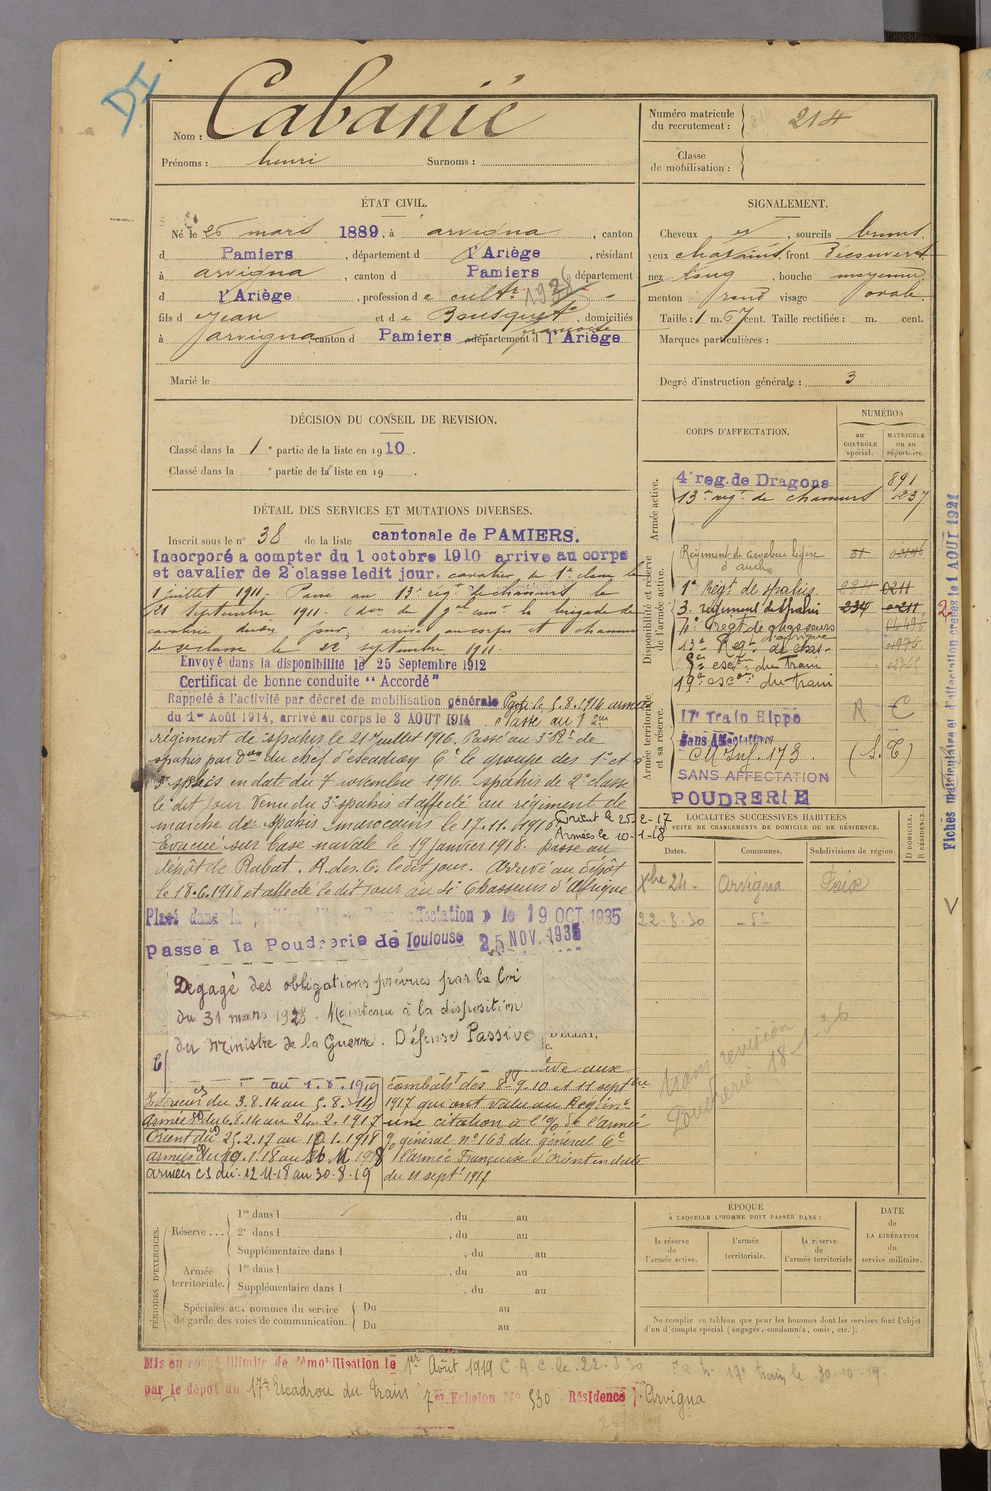 DI
Nom : Cabanié
Prénoms : henri Surnoms :
Numéro matricule du recrutement : 214
Classe de mobilisation :
ÉTAT CIVIL.
Né le 26 mars 1889, à arvigna, canton
d Pamiers, département d l'Ariège, résidant
à arvigna, canton d Pamiers département
d l'Ariège, profession de cult.
fils d Jean et de Bousquet françoise, domiciliés
à arvigna canton d Pamiers département d l'Ariège
Marié le
SIGNALEMENT.
Cheveux et, sourcils bruns
yeux chatains, front Découvert
nez long, bouche moyenne
menton rond visage ovale
Taille : 1 m. 67 cent. Taille rectifiée : m. cent.
Marques particulières :
Degré d'instruction générale : 3
DÉCISION DU CONSEIL DE REVISION.
Classé dans la 1e partie de la liste en 1910.
Classé dans la e partie de la liste en 19 .
DÉTAIL DES SERVICES ET MUTATIONS DIVERSES.
Inscrit sous le n° 38 de la liste cantonale de PAMIERS.
Incorporé a compter du 1 octobre 1910 arrive au corps
et cavalier de 2e classe ledit jour, cavalier de 1e classe le
1 juillet 1911. Passé au 13e rég. de chasseurs le
21 Septembre 1911. (don du gal comt la brigade de
cavalerie dudit jour, arrivé au corps et chasseur
de 2e classe le 22 septembre 1911.
Envoyé dans la disponibilité le 25 Septembre 1912
Certificat de bonne conduite "Accordé"
Rappelé à l'activité par décret de mobilisation générale Parti le 5.8.1914 armées
du 1er Août 1914, arrivé au corps le 3 AOUT 1914. Passé au 1er
régiment de spahis le 21 Juillet 1916. Passé au 3e Rt de
spahis par don du chef d'escadron Ct le groupe des 1er et
3e spahis en date du 7 novembre 1916. Spahis de 2e classe
le dit jour. Venu du 3e spahis et affecté au régiment de
marche de spahis marocains le 17.11.1916. Orient le 25-2-17
Armées le 10-1-18
Evacué sur base navale le 19 janvier 1918. passé au
dépôt de Rabat. A.des C. ledit jour. Arrivé au dépôt
le 18.6.1918 et affecté le dit jour au 4e Chasseurs d'Afrique
Placé dans la affectation » le 19 OCT. 1935
passe à la Poudrerie de Toulouse 25 NOV. 1935
Dégagé des obligations prévues par la loi
du 31 mars 1928. Maintenu à la disposition
du Ministre de la Guerre. Défense Passive
D'ÉCLAT,
au 1.8.1919
Intérieur du 3.8.14 au 5.8.14
Armées du 6.8.14 au 24.2.1917
Orient du 25.2.17 au 10.1.1918
armées du 10.1.18 au 11 1918
armées CS du 12.11.18 au 30.8.19
aux
combats des 8-9-10 et 11 septbre
1917 qui ont valu au Régimt
une citation à l'% 56 l'armée
% général n° 163 du général Ct
l'Armée Française d'Orient en date
du 11 sept. 1917
CORPS D'AFFECTATION.
NUMÉROS
au CONTRÔLE spécial.
MATRICULE ou au répertoire.
Armée active.
4e reg. de Dragons 891
13e régt de chasseurs 1237
Disponibilité et réserve de l'armée active.
Régiment de cavalerie légère à auch 31
1er Régt de spahis 0211
3. régiment de spahis 234 0211
4e Régt de chasseurs d'afrique
13e Régt de chas-
5e escon du train
19e escon du train
Armée territoriale et sa réserve.
17e Train Hippo R C
Sans Affectation
CM Inf. 173 (S.C)
SANS AFFECTATION
POUDRERIE
LOCALITÉS SUCCESSIVES HABITÉES
SUITE DE CHANGEMENTS DE DOMICILE OU DE RÉSIDENCE.
Dates. Communes. Subdivisions de région. D DOMICILE. R RÉSIDENCE.
Xbre 24. Arvigna Foix
22-3-30 -do-
trans revision
Poudrerie 18-1-36
Fiches matriculaire et d'affectation créées le 1 AOUT 1921
PÉRIODES D'EXERCICES.
Réserve ... 1re dans l , du au
2e dans l , du au
Supplémentaire dans l , du au
Armée territoriale. 1re dans l , du au
Supplémentaire dans l , du au
Spéciales aux hommes du service de garde des voies de communication. Du au
Du au
ÉPOQUE
À LAQUELLE L'HOMME DOIT PASSER DANS :
la réserve de l'armée active.
l'armée territoriale.
la réserve de l'armée territoriale
DATE de LA LIBÉRATION du service militaire.
Ne remplir ce tableau que pour les hommes dont les services font l'objet
d'un compte spécial (engagés, condamnés, omis, etc.).
Mis en congé illimité de démobilisation le 1er Août 1919 C.A.C. le 22.3.30 17e train le 30-10-19.
par le dépôt du 17e Escadron du train 7me Echelon N° 530 Résidence : Arvigna